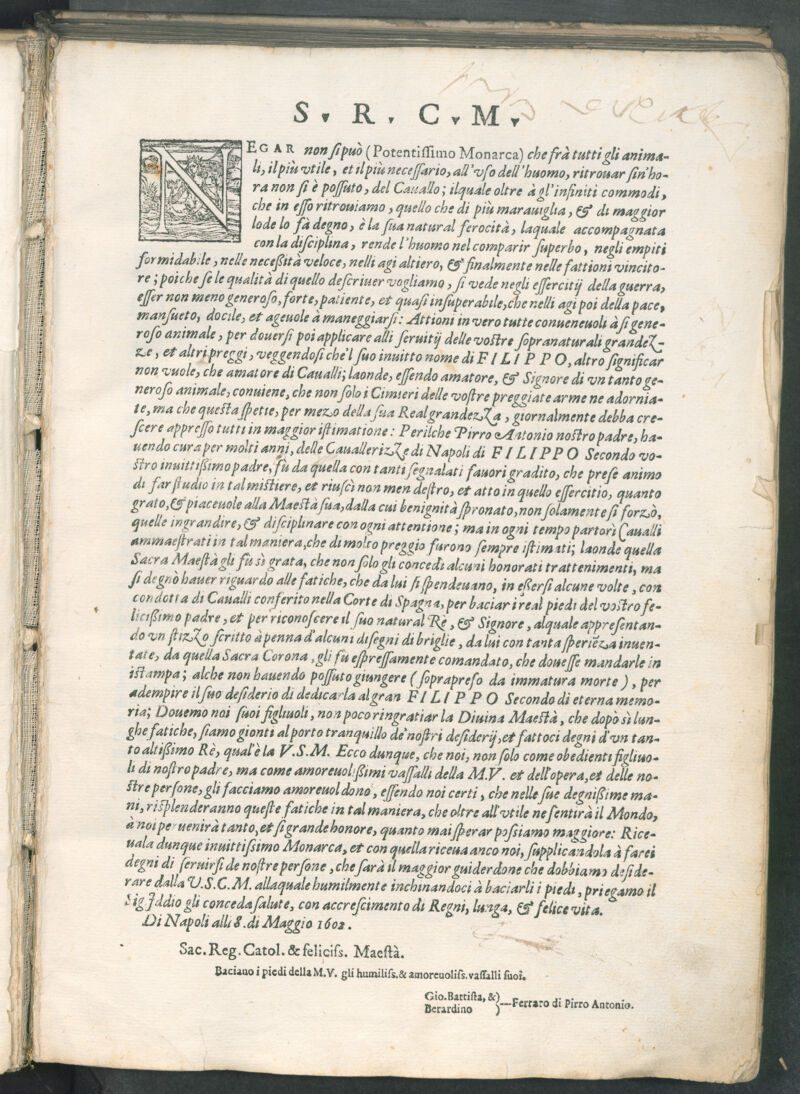 S. R. C. M.
NEGAR non si può (Potentissimo Monarca) che frà tutti gli anima-
li, il più vtile, et il più necessario, all'vso dell'huomo, ritrouar sin'ho-
ra non si è possuto, del Cauallo; ilquale oltre à gl'infiniti commodi,
che in esso ritrouiamo, quello che di più marauiglia, & di maggior
lode lo fà degno, è la sua natural ferocità, laquale accompagnata
con la disciplina, rende l'huomo nel comparir superbo, negli empiti
formidabile, nelle necessità veloce, nelli agi altiero, & finalmente nelle fattioni vincito-
re; poiche se le qualità di quello descriuer vogliamo, si vede negli essercitij della guerra,
esser non meno generoso, forte, patiente, et quasi insuperabile, che nelli agi poi della pace,
mansueto, docile, et ageuole à maneggiarsi: Attioni in vero tutte conueneuoli à sì gene-
roso animale, per douersi poi applicare alli seruitij delle vostre sopranaturali grandez-
ze, et altri preggi, veggendosi che'l suo inuitto nome di FILIPPO, altro significar
non vuole, che amatore di Caualli; laonde, essendo amatore, & Signore di vn tanto ge-
neroso animale, conuiene, che non solo i Cimieri delle vostre preggiate arme ne adornia-
te, ma che questa spetie, per mezo della sua Real grandezza, giornalmente debba cre-
scere appresso tutti in maggior istimatione: Perilche Pirro Antonio nostro padre, ha-
uendo cura per molti anni, delle Cauallerizze di Napoli di FILIPPO Secondo vo-
stro inuittissimo padre, fù da quella con tanti segnalati fauori gradito, che prese animo
di far studio in tal mistiere, et riuscì non men destro, et atto in quello essercitio, quanto
grato, & piaceuole alla Maestà sua, dalla cui benignità spronato, non solamente si forzò,
quelle ingrandire, & disciplinare con ogni attentione; ma in ogni tempo partorì Caualli
ammaestrati in tal maniera, che di molto preggio furono sempre istimati; laonde quella
Sacra Maestà gli fù sì grata, che non solo gli concedì alcuni honorati trattenimenti, ma
si degnò hauer riguardo alle fatiche, che da lui si spendeuano, in essersi alcune volte, con
condotta di Caualli conferito nella Corte di Spagna, per baciar i real piedi del vostro fe-
licissimo padre, et per riconoscere il suo natural Rè, & Signore, alquale appresentan-
do vn stizzo scritto à penna d'alcuni disegni di briglie, da lui con tanta speriẽza inuen-
tate, da quella Sacra Corona, gli fù espressamente comandato, che douesse mandarle in
istampa; alche non hauendo possuto giungere (sopra preso da immatura morte), per
adempire il suo desiderio di dedicarla al gran FILIPPO Secondo di eterna memo-
ria; Douemo noi suoi figliuoli, non poco ringratiar la Diuina Maestà, che dopò sì lun-
ghe fatiche, siamo gionti al porto tranquillo de' nostri desiderij, et fattoci degni d'vn tan-
to altissimo Rè, qual'è la V.S.M. Ecco dunque, che noi, non solo come obedienti figliuo-
li di nostro padre, ma come amoreuolissimi vassalli della M.V. et dell'opera, et delle no-
stre persone, gli facciamo amoreuol dono, essendo noi certi, che nelle sue degnissime ma-
ni, risplenderanno queste fatiche in tal maniera, che oltre all'vtile ne sentirà il Mondo,
à noi peruenirà tanto, et sì grande honore, quanto mai sperar possiamo maggiore: Rice-
uala dunque inuittissimo Monarca, et con quella riceua anco noi, supplicandola à farci
degni di seruirsi de nostre persone, che sarà il maggior guiderdone che dobbiamo deside-
rare dalla V.S.C.M. allaquale humilmente inchinandoci à baciarli i piedi, priegamo il
Sig. Iddio gli conceda salute, con accrescimento di Regni, lunga, & felice vita.
Di Napoli alli 8. di Maggio 1602.
Sac. Reg. Catol. & feliciss. Maestà.
Baciano i piedi della M.V. gli humiliss. & amoreuoliss. vassalli suoi.
Gio. Battista, &
Berardino } —Ferraro di Pirro Antonio.